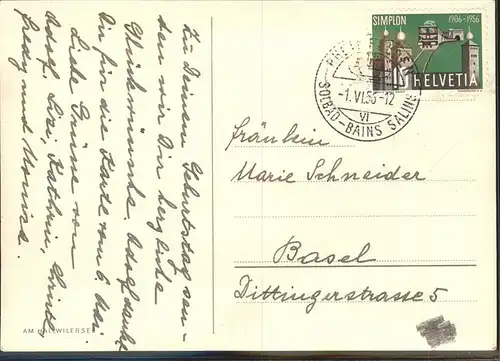 Zu Deinem Geburtstag sen-
den wir Dir herzliche
Glückwünsche. Adolf dankt
Dir für die Karte vom 6. Mai
Liebe Grüsse von
Adolf, Lisi, Kathrin, Christel
Franz und Monika.
AM HALLWILERSEE
SIMPLON 1906-1956
HELVETIA
-1.VI.56-12
VI
SOLBAD-BAINS SALINS
Fräulein
Marie Schneider
Basel
Dittingerstrasse 5